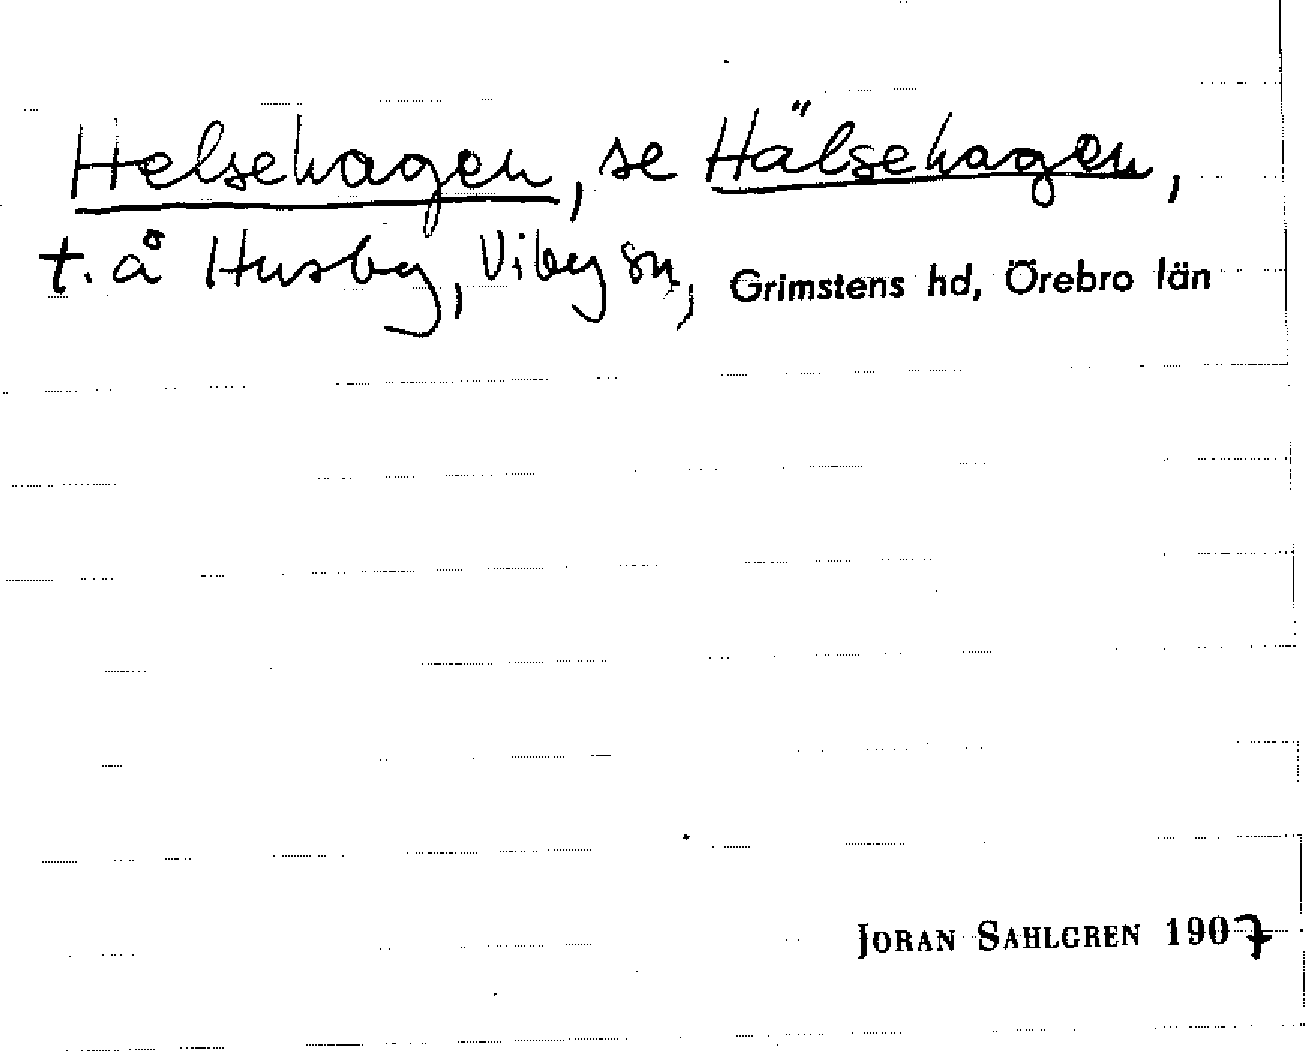 Helsehagen, se Hälsehagen,
t. å Husby, Viby sn, Grimstens hd, Örebro län
JORAN SAHLGREN 1907